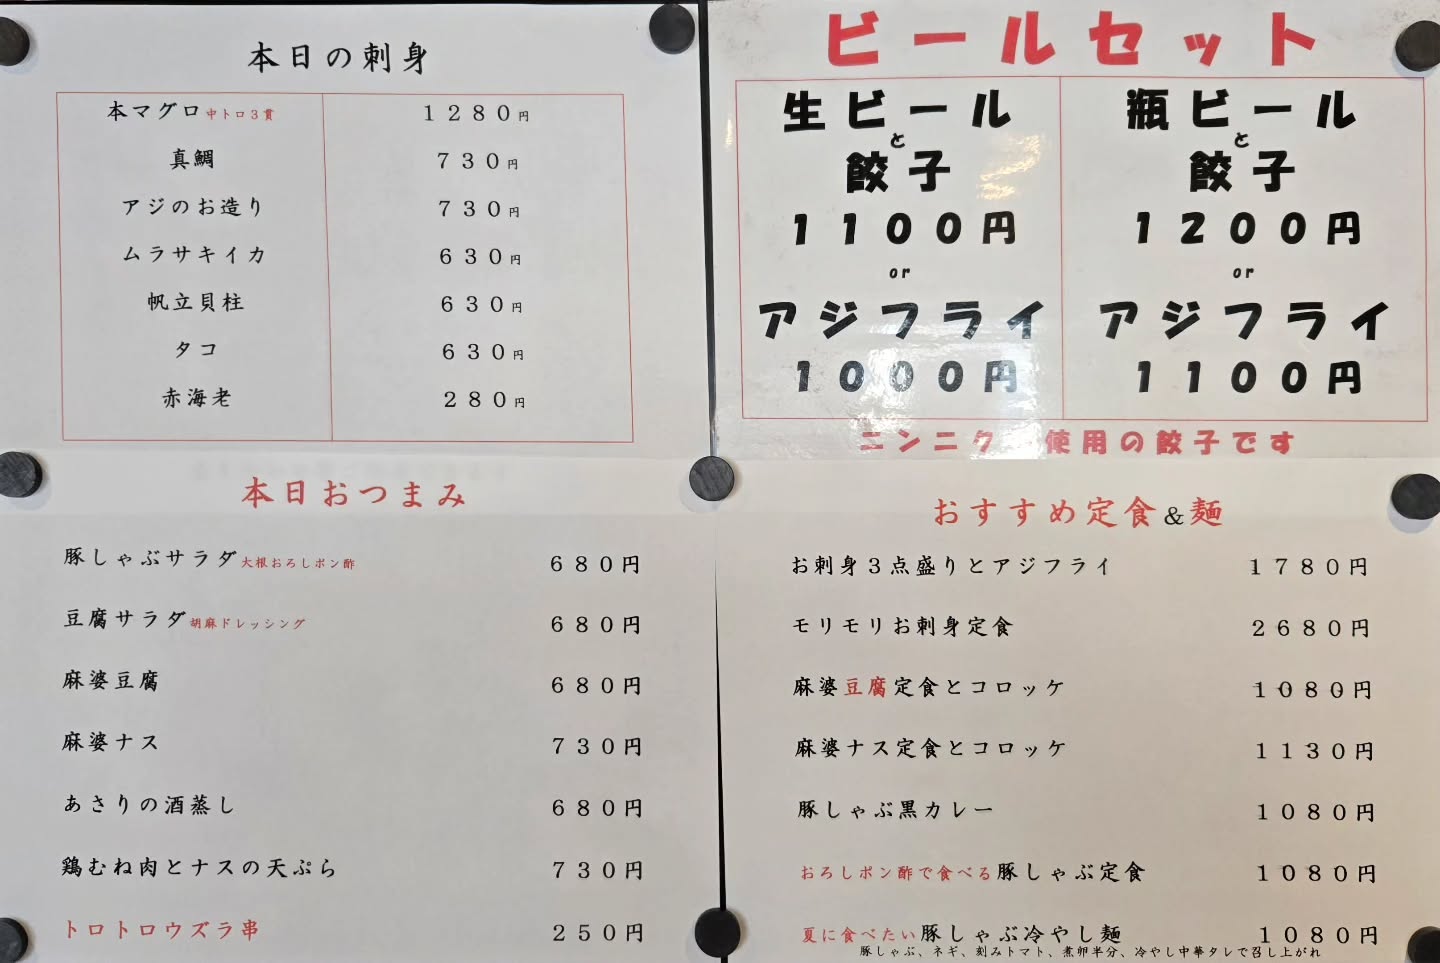 本日の刺身
本マグロ中トロ3貫 1280円
真鯛 730円
アジのお造り 730円
ムラサキイカ 630円
帆立貝柱 630円
タコ 630円
赤海老 280円
ビールセット
生ビール
と
餃子
1100円
or
アジフライ
1000円
瓶ビール
と
餃子
1200円
or
アジフライ
1100円
ニンニク 使用の餃子です
本日おつまみ
豚しゃぶサラダ大根おろしポン酢 680円
豆腐サラダ胡麻ドレッシング 680円
麻婆豆腐 680円
麻婆ナス 730円
あさりの酒蒸し 680円
鶏むね肉とナスの天ぷら 730円
トロトロウズラ串 250円
おすすめ定食&麺
お刺身3点盛りとアジフライ 1780円
モリモリお刺身定食 2680円
麻婆豆腐定食とコロッケ 1080円
麻婆ナス定食とコロッケ 1130円
豚しゃぶ黒カレー 1080円
おろしポン酢で食べる豚しゃぶ定食 1080円
夏に食べたい豚しゃぶ冷やし麺 1080円
豚しゃぶ、ネギ、刻みトマト、煮卵半分、冷やし中華タレで召し上がれ